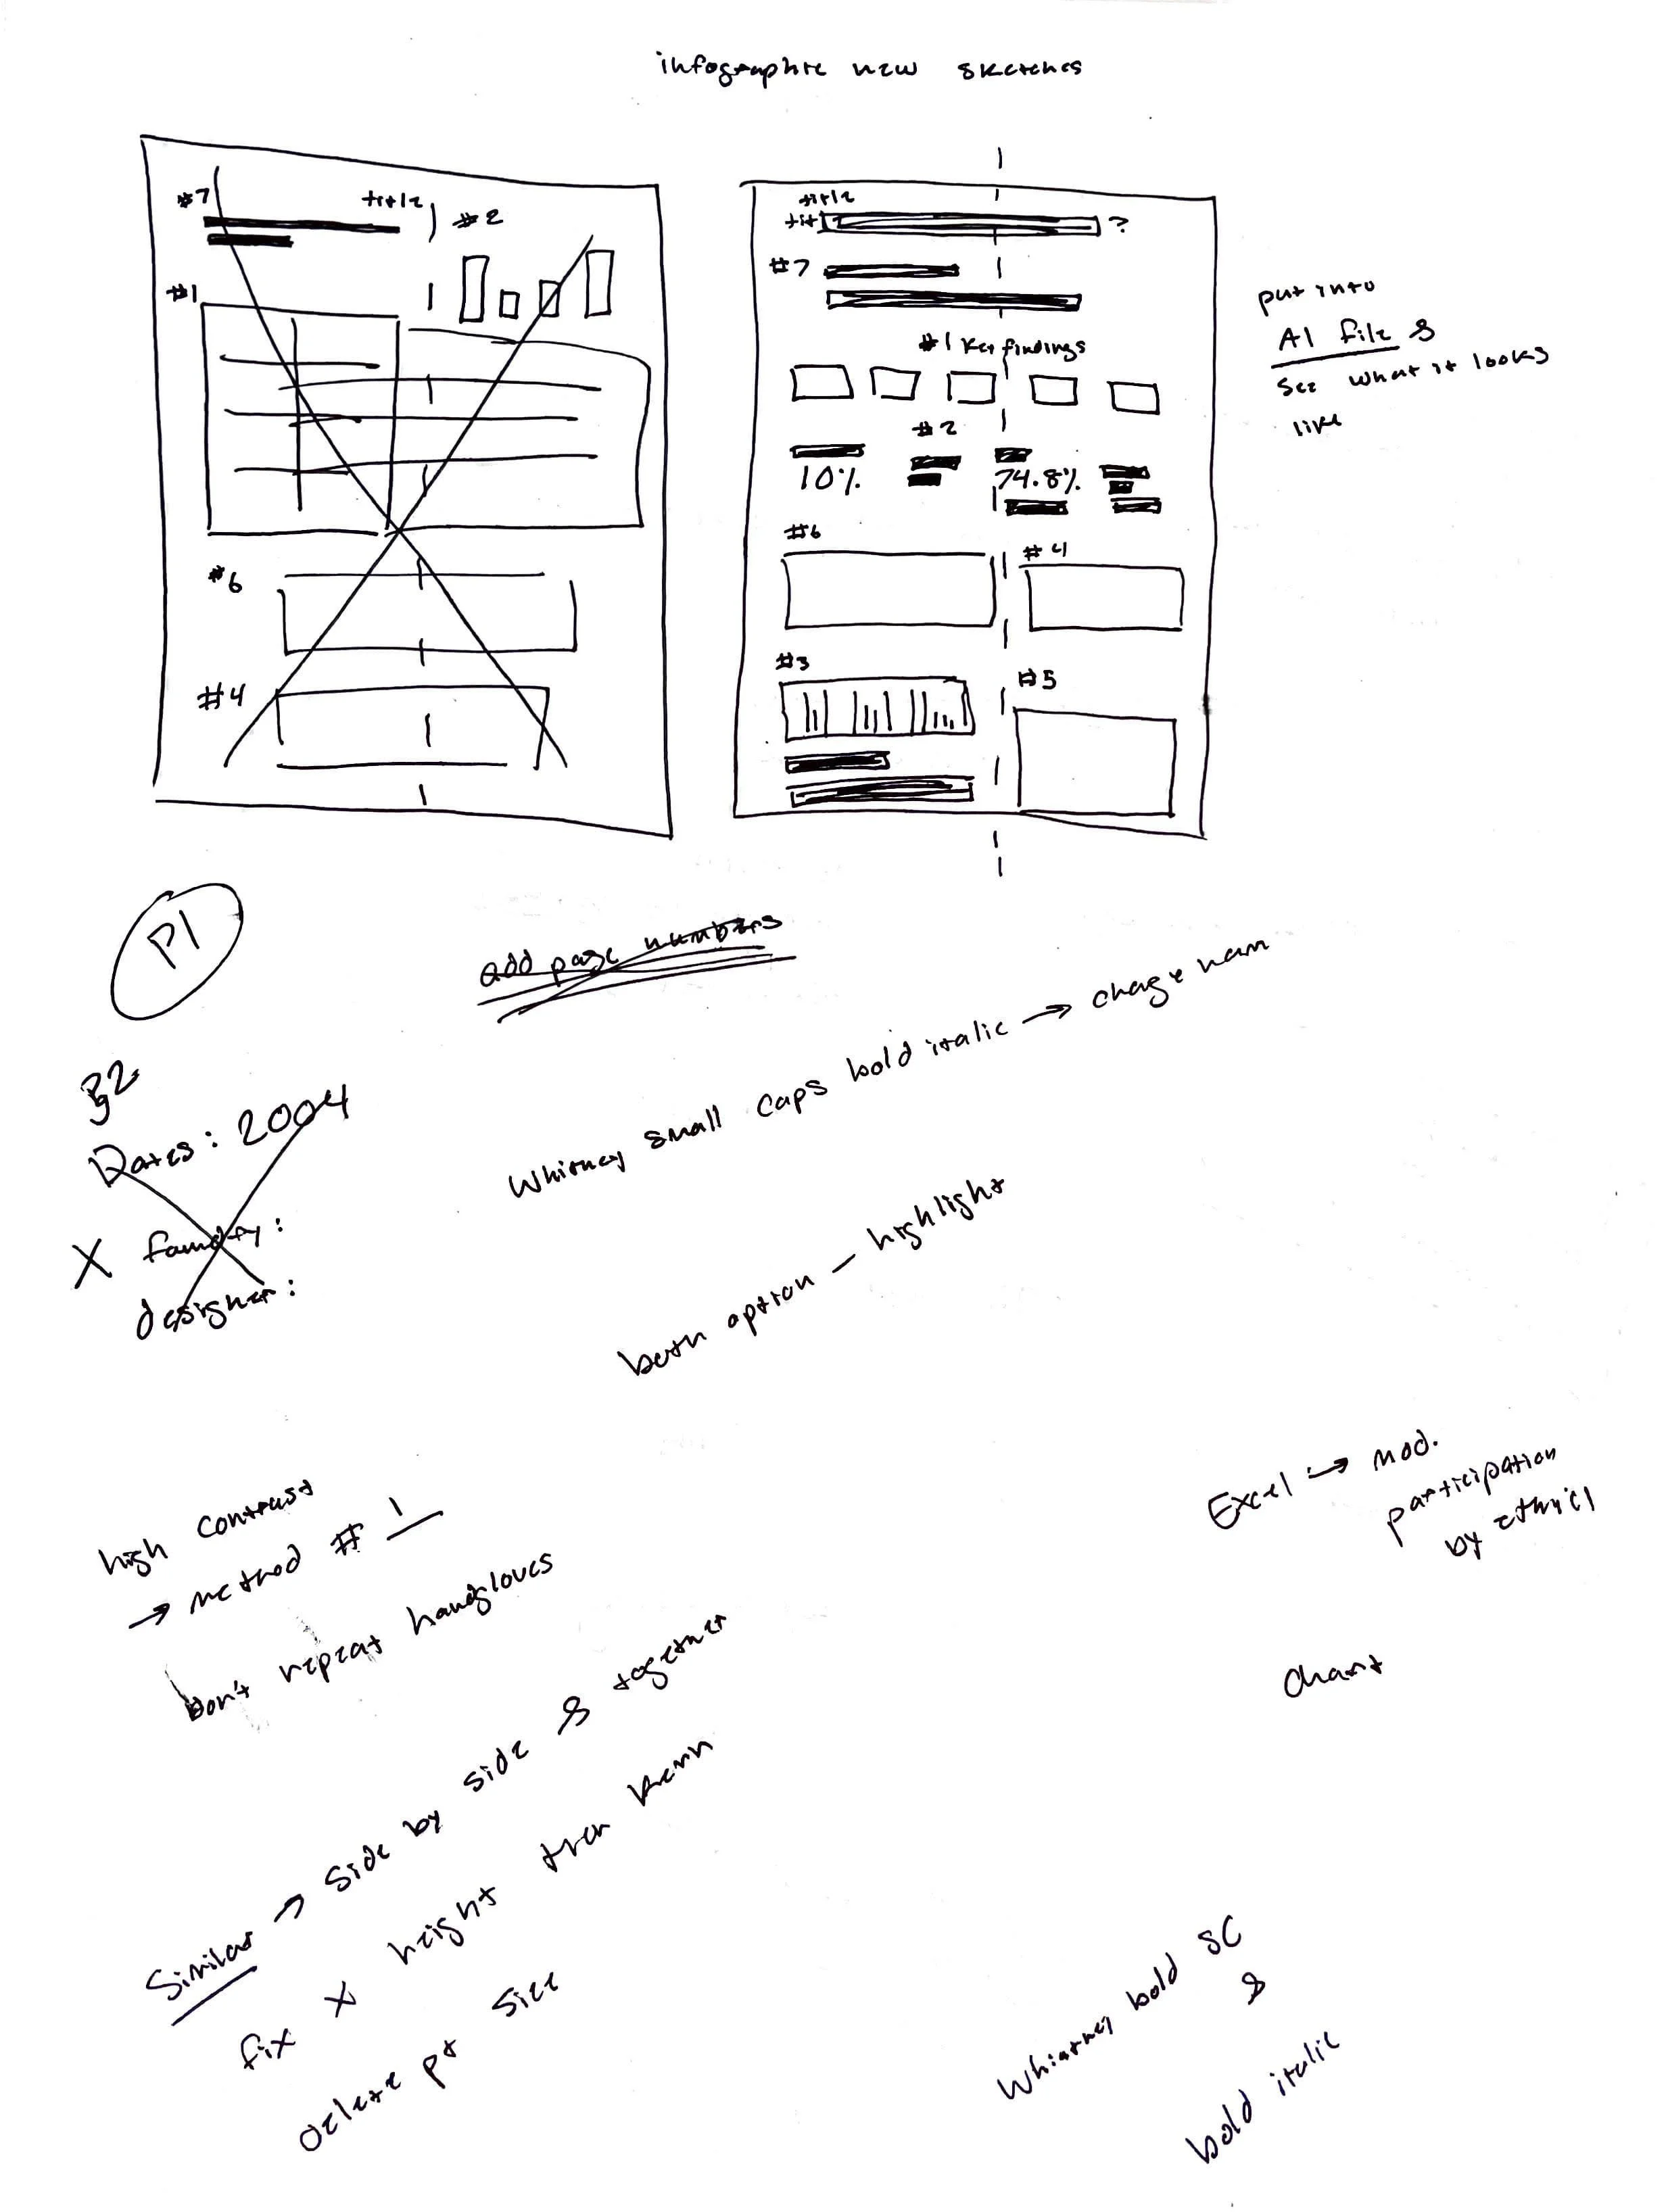 infographic new sketches
#7
title
#2
#1
#6
#4
title
tit
?
#7
#1 Key findings
#2
10%
74.8%
#6
#4
#3
#5
put into
AI file &
see what it looks
like
P1
add page numbers
32
Dates: 2004
X foundry:
designer:
Whitney small caps bold italic → change nam
both option — highlight
high contrast
→ method # 1
Don't repeat handgloves
Similar → side by side & together
fix x height then kern
Delete pt size
Excel → mod.
participation
by
chart
Whitney bold SC
&
bold italic